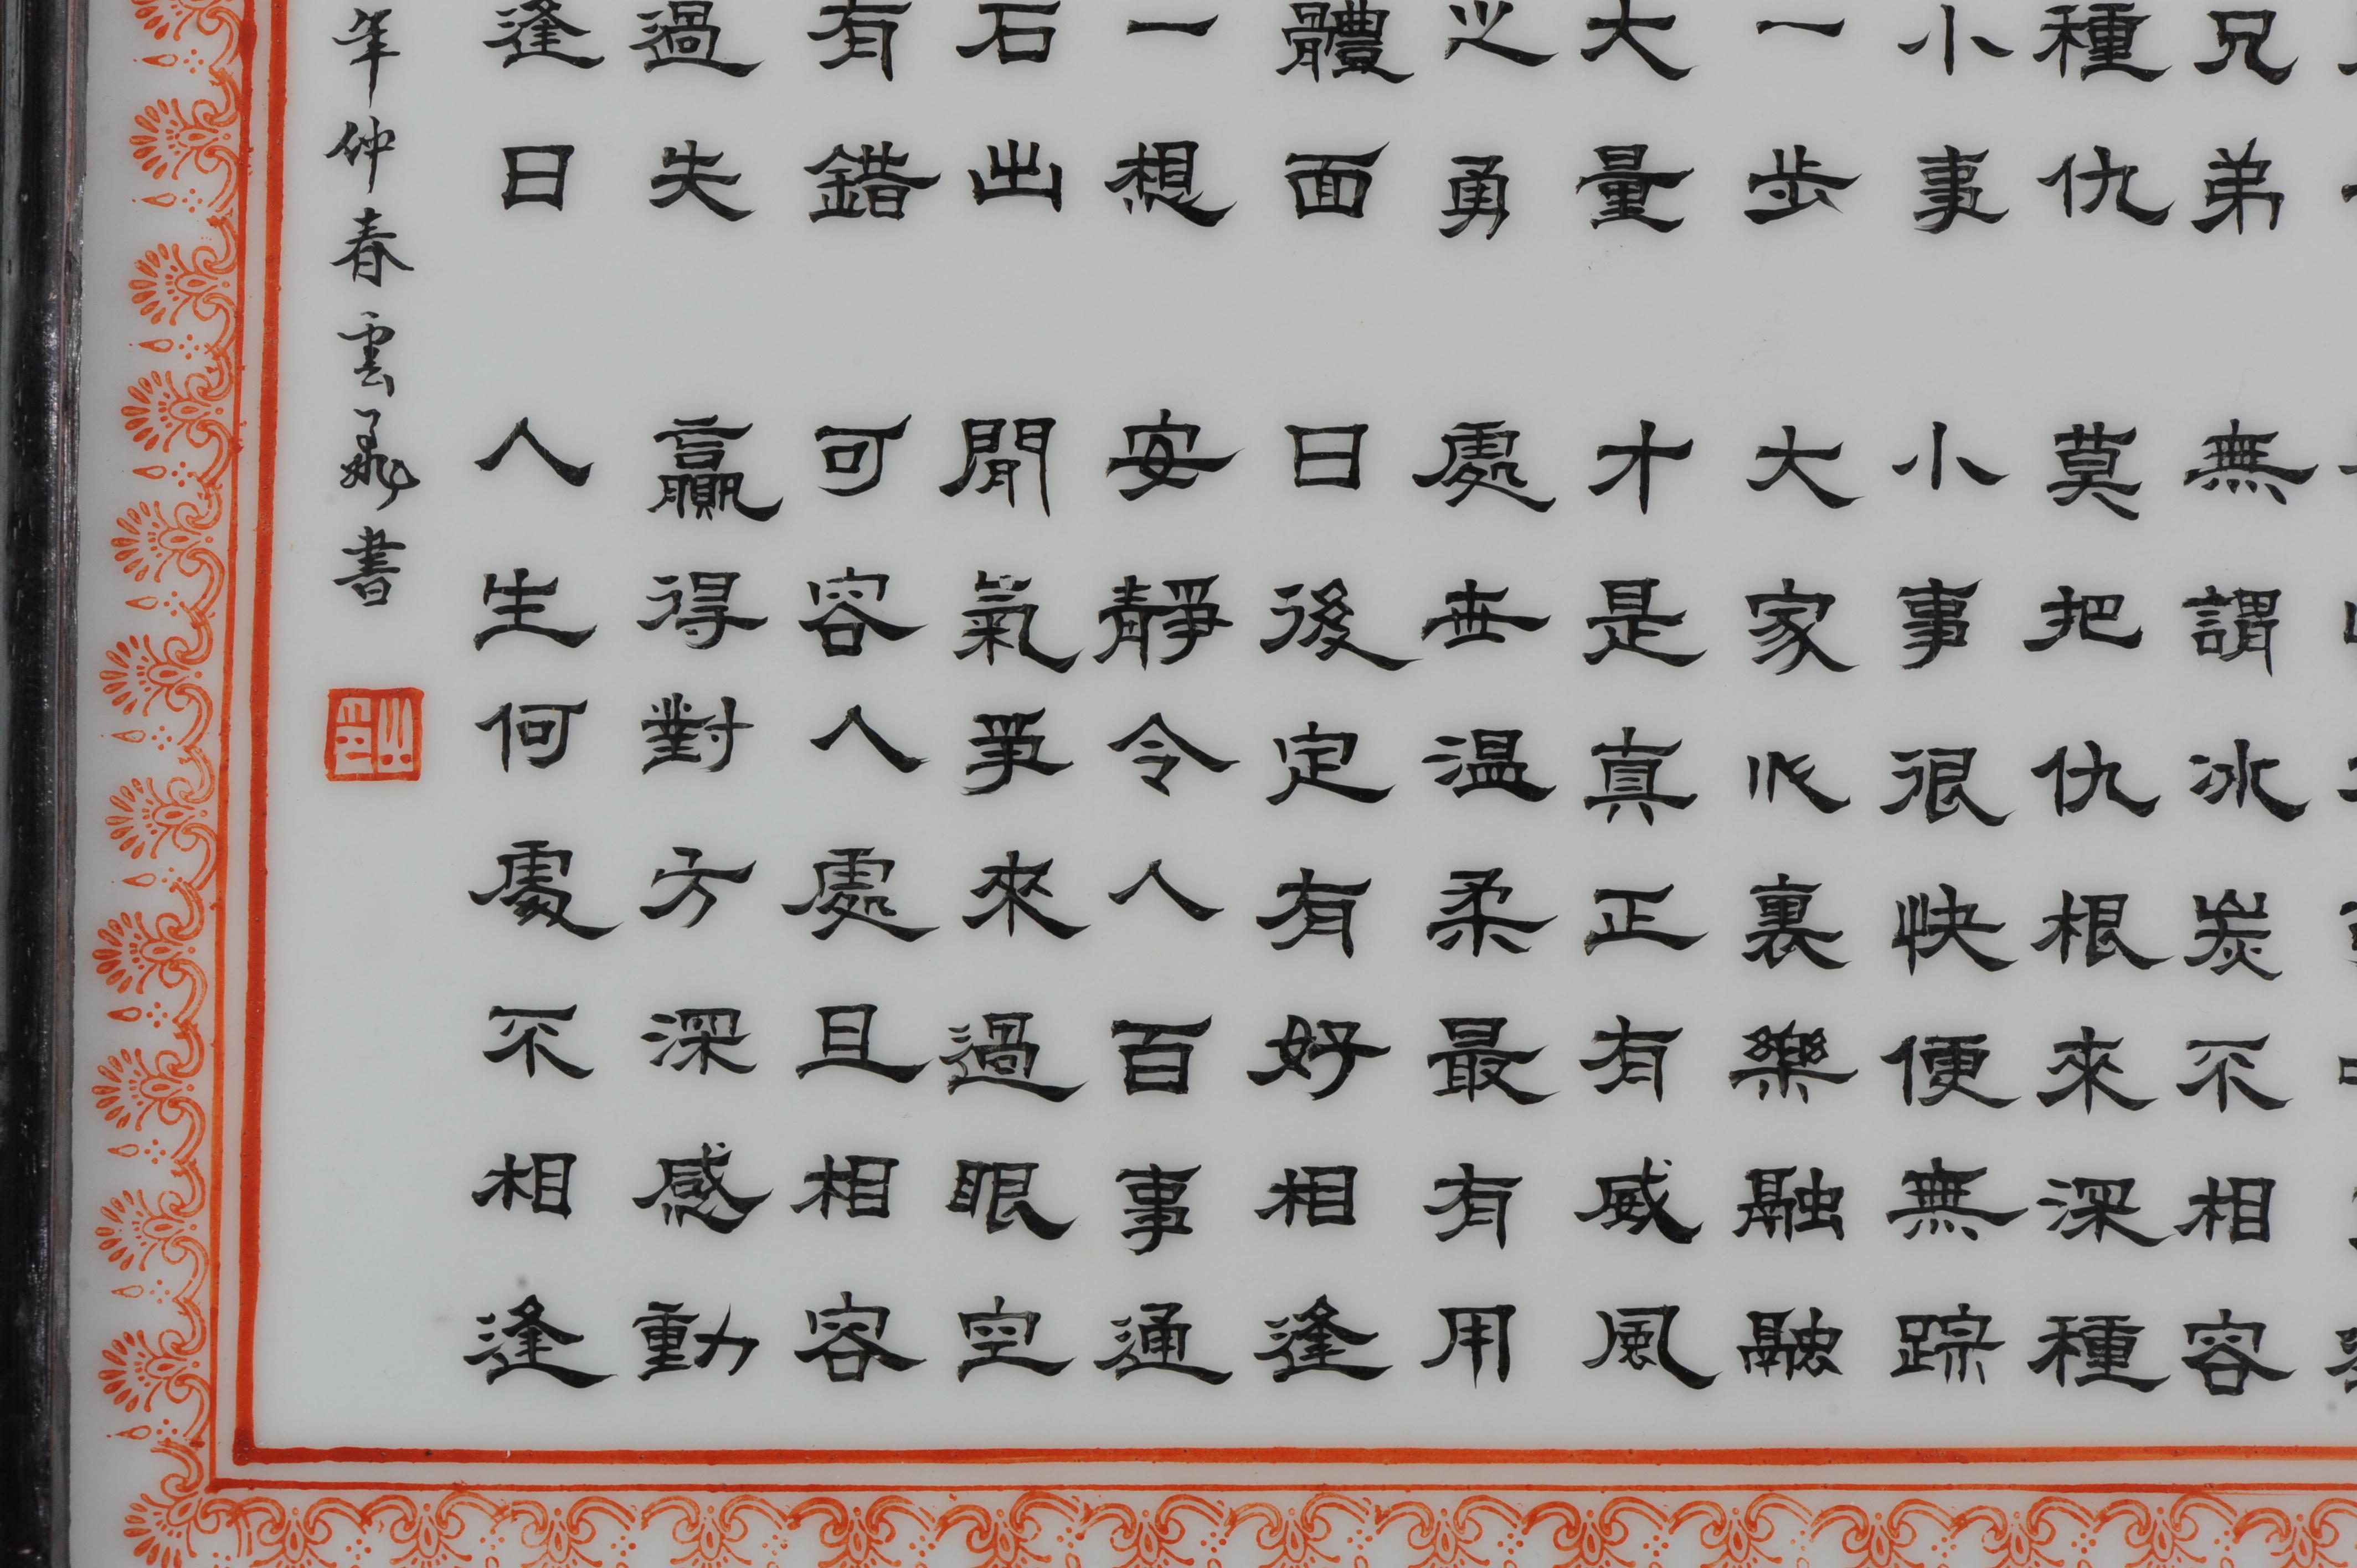 兄弟 無謂冰炭不相容
種仇 莫把仇根來深種
小事 小事很快便無踪
一步 大家心裏樂融融
大量 才是真正有威風
之勇 處世温柔最有用
體面 日後定有好相逢
一想 安靜令人百事通
石出 閒氣爭來過眼空
有錯 可容人處且相容
過失 贏得對方深感動
逢日 人生何處不相逢
年仲春雲書